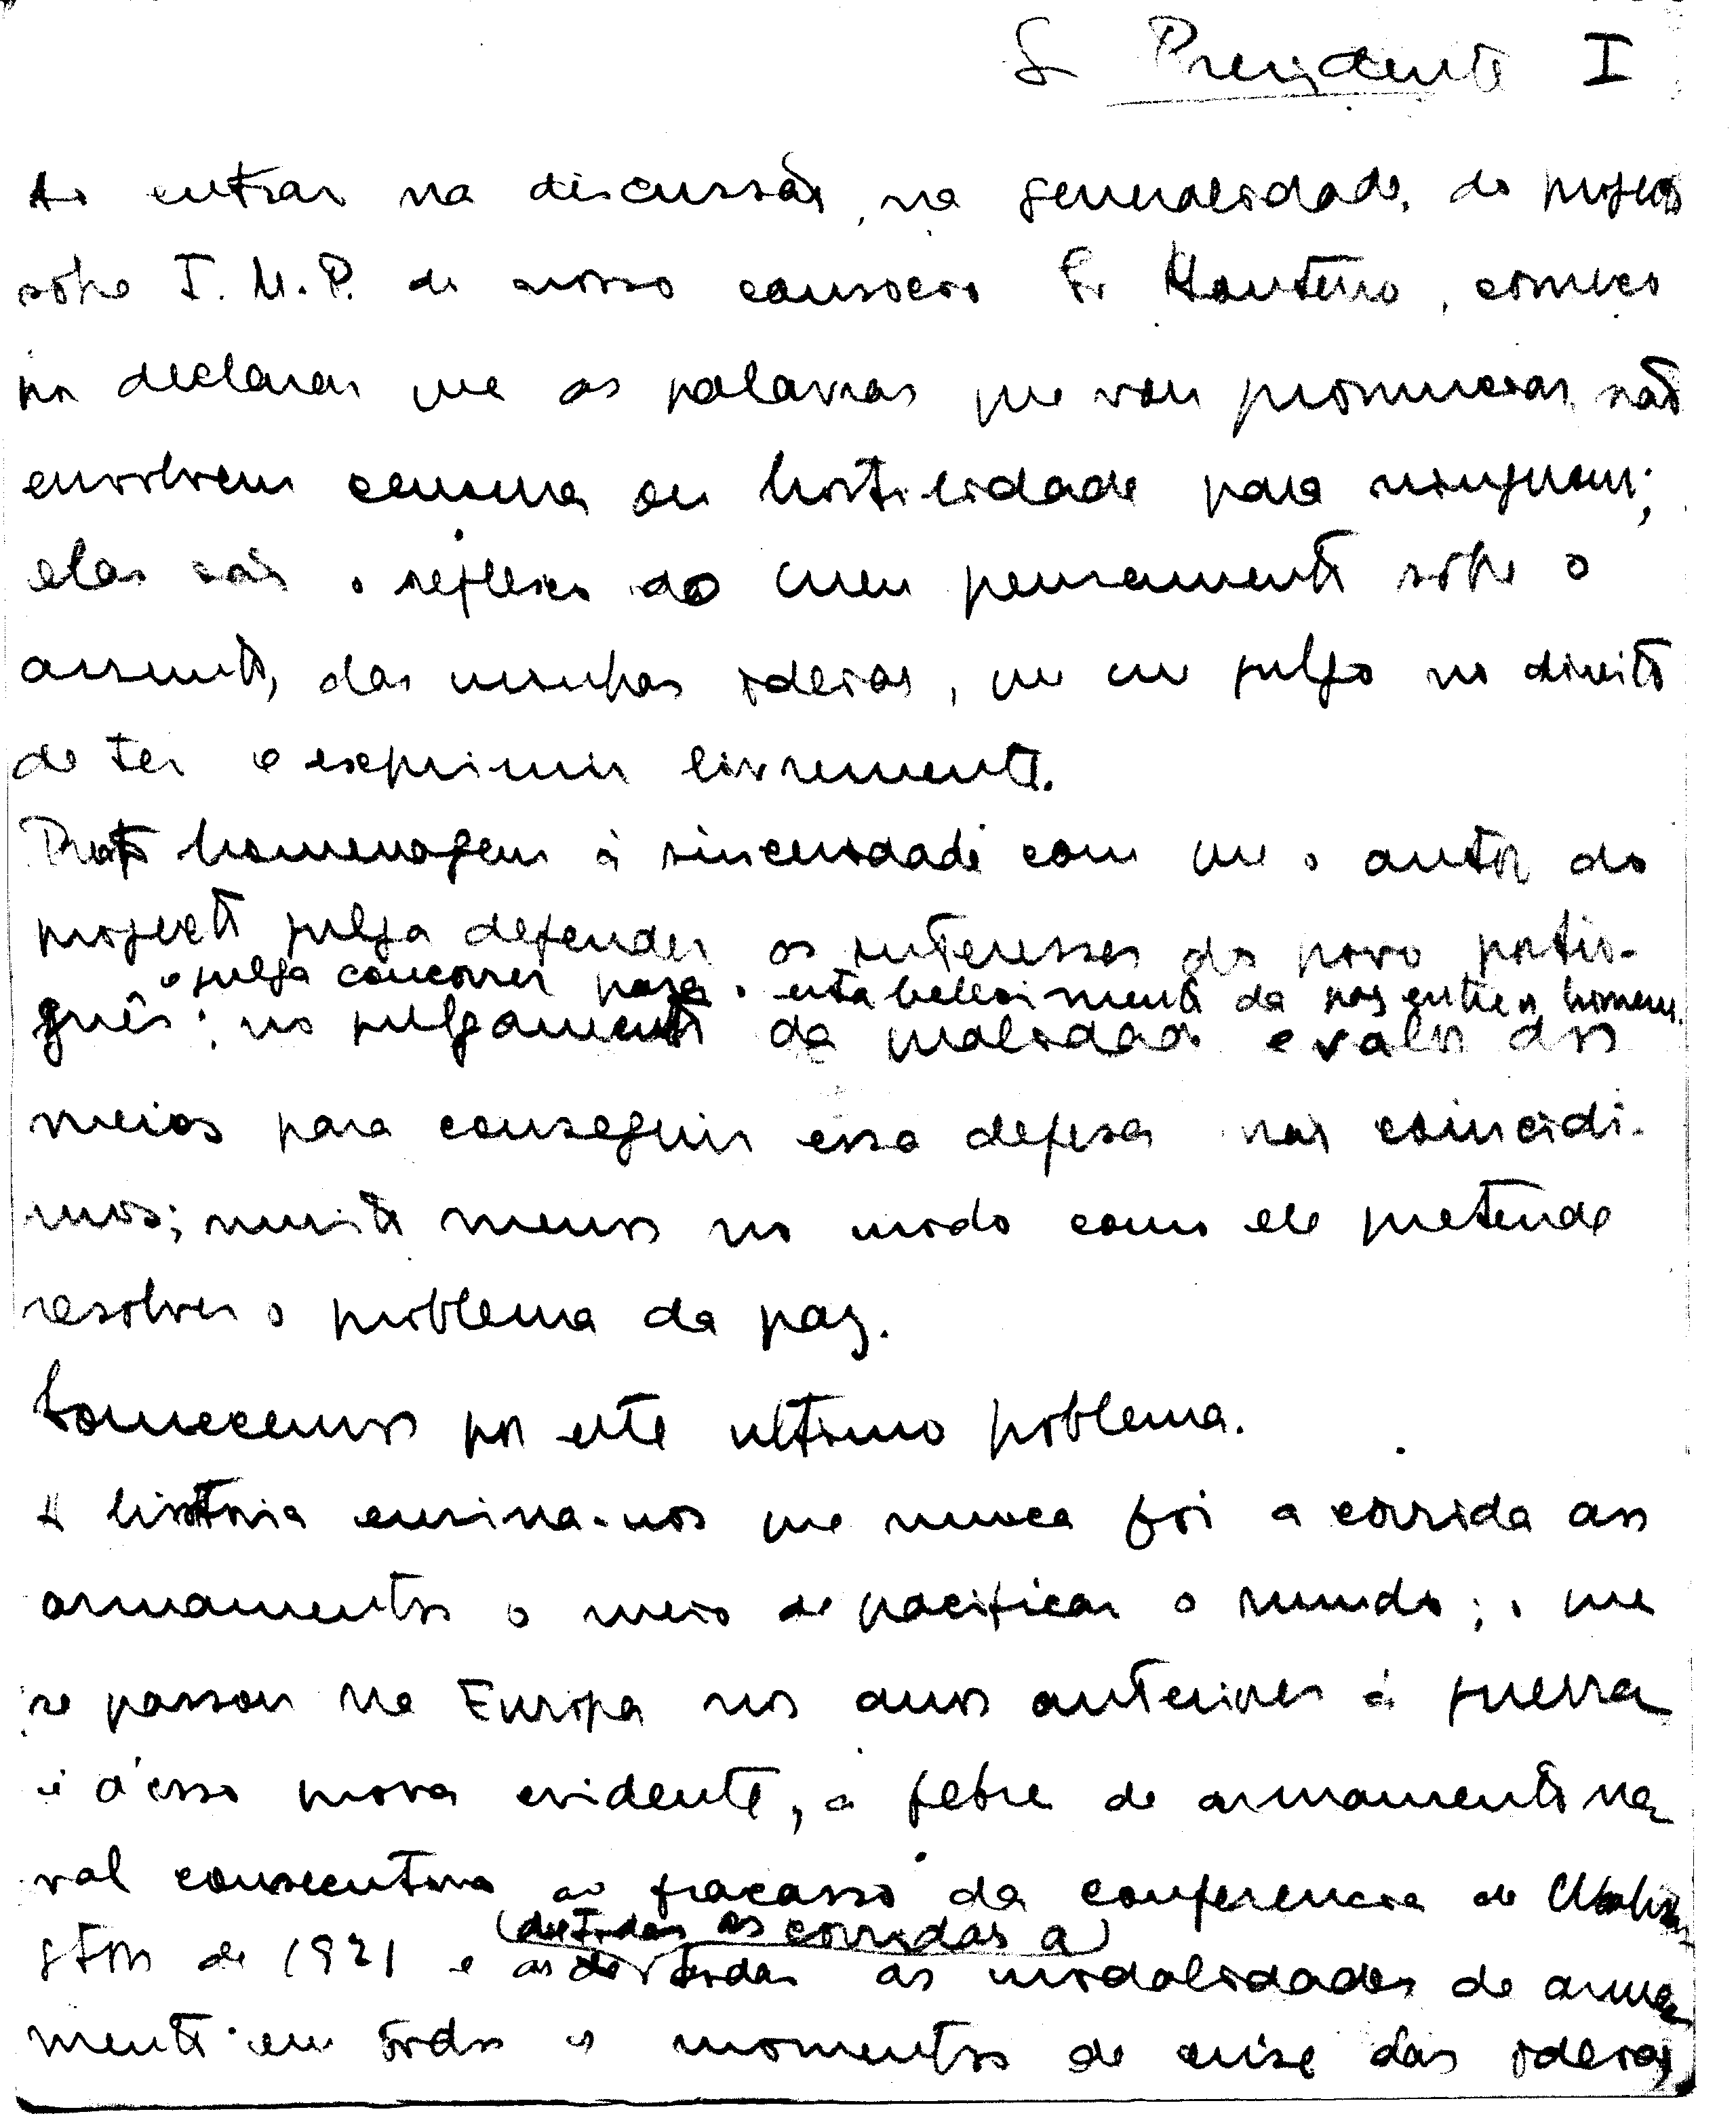 Sr Presidente I
Ao entrar na discussão, na generalidade, do projecto
sôbre I. M. P. do nosso consocio Sr Monteiro, começo
por declarar que as palavras que vou pronunciar, não
envolvem censura ou hostilidade para ninguem;
elas são o reflexo do meu pensamento sôbre o
assunto, das minhas ideias, que me julgo no direito
de ter e exprimir livremente.
Presto homenagem á sinceridade com que o autor do
projecto julga defender os interesses do povo portu-
e julga concorrer para o estabelecimento da paz entre os homens.
guês; no julgamento da qualidade e valor dos
meios para conseguir essa defesa não coincidi-
mos; muito menos no modo como ele pretende
resolver o problema da paz.
Comecemos por este ultimo problema.
A história ensina-nos que nunca foi a corrida aos
armamentos o meio de pacificar o mundo; o que
se passou na Europa nos anos anteriores á guerra
é d'isso prova evidente, a febre de armamento na
val consecutiva ao fracasso da conferencia de Washin
(de todas as corridas a)
gton de 1921 e as de todas as modalidades de arma
mento em todos os momentos de crise das ideias